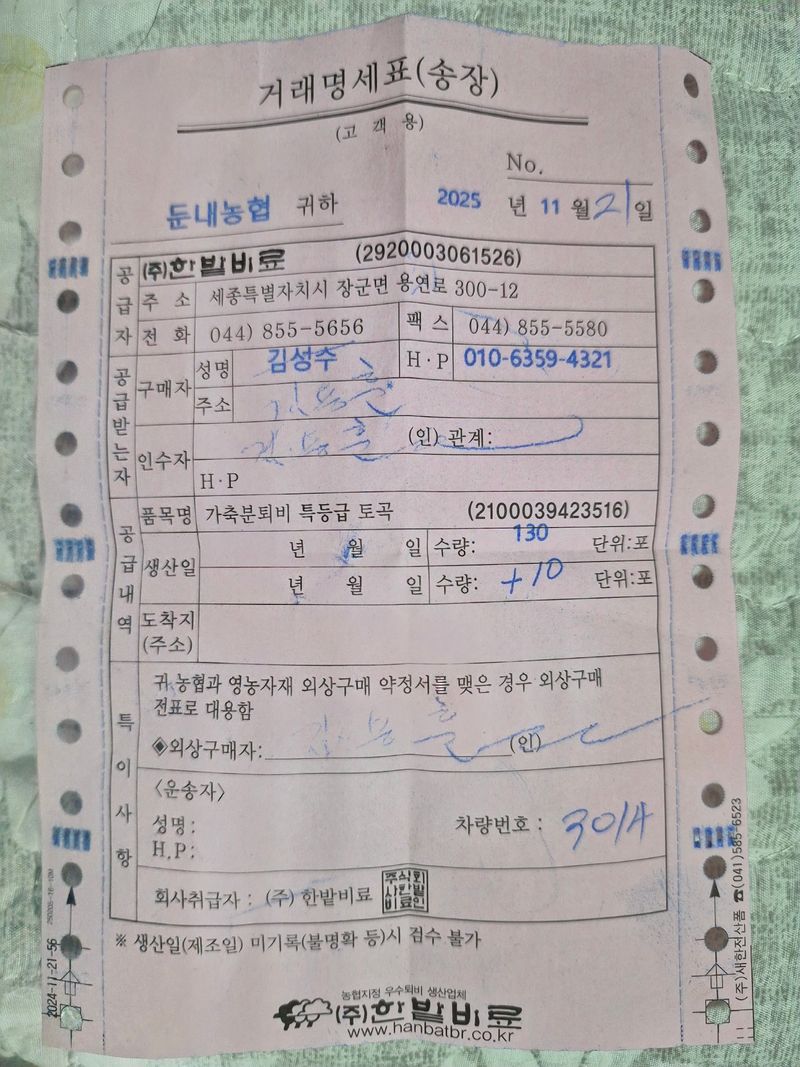 거래명세표(송장)
(고 객 용)
No.
둔내농협 귀하 2025 년 11 월 21 일
공급자 (주)한밭비료 (2920003061526)
주 소 세종특별자치시 장군면 용연로 300-12
전 화 044) 855-5656 팩 스 044) 855-5580
공급받는자 구매자 성명 김성수 H·P 010-6359-4321
주소
인수자 (인) 관계:
H·P
공급내역 품목명 가축분퇴비 특등급 토곡 (2100039423516)
생산일 년 월 일 수량: 130 단위:포
년 월 일 수량: +10 단위:포
도착지
(주소)
특이사항 귀 농협과 영농자재 외상구매 약정서를 맺은 경우 외상구매
전표로 대용함
◈외상구매자: (인)
〈운송자〉
성명: 차량번호 :
H.P:
회사취급자 : (주) 한밭비료 주식회사한밭비료인
※ 생산일(제조일) 미기록(불명확 등)시 검수 불가
농협지정 우수퇴비 생산업체
(주)한밭비료
www.hanbatbr.co.kr
2024-11-21-56
(주)새한전산폼 ☎(041)585-6523